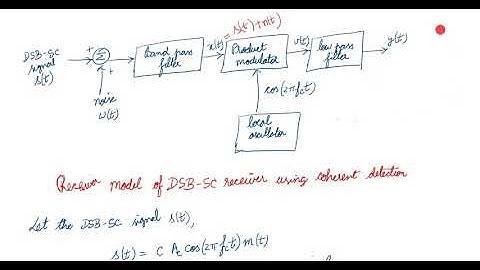 DSB-SC
signal
s(t)
+
Σ
+
noise
w(t)
band pass
filter
x(t) = s(t)+n(t)
Product
modulator
v(t)
low pass
filter
y(t)
cos(2πfct)
local
oscillator
Receiver model of DSB-SC receiver using coherent detection
Let the DSB-SC signal s(t),
s(t) = C Ac cos(2πfct) m(t)